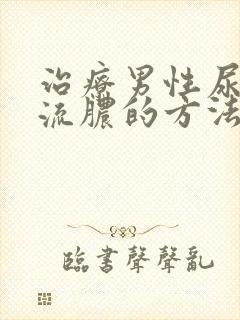 治療男性尿
流膿的方法
臨書聲聲亂